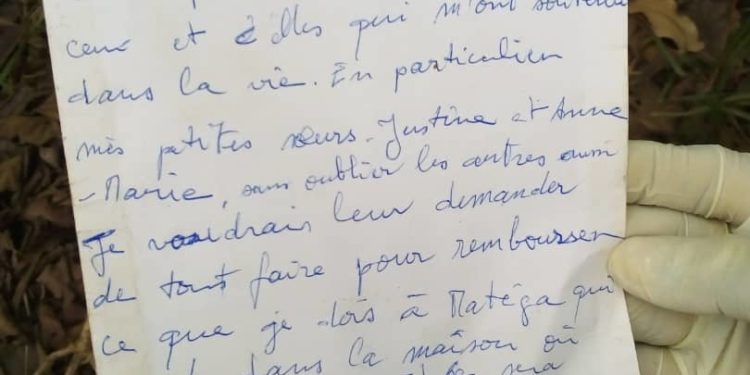 ceux et à elles qui m'ont soutenu
dans la vie. En particulier
mes petites sœurs. Justine et Anne
-Marie, sans oublier les autres aussi
Je voudrais leur demander
de tout faire pour rembourser
ce que je dois à Matéga qui
dans la maison où
sera